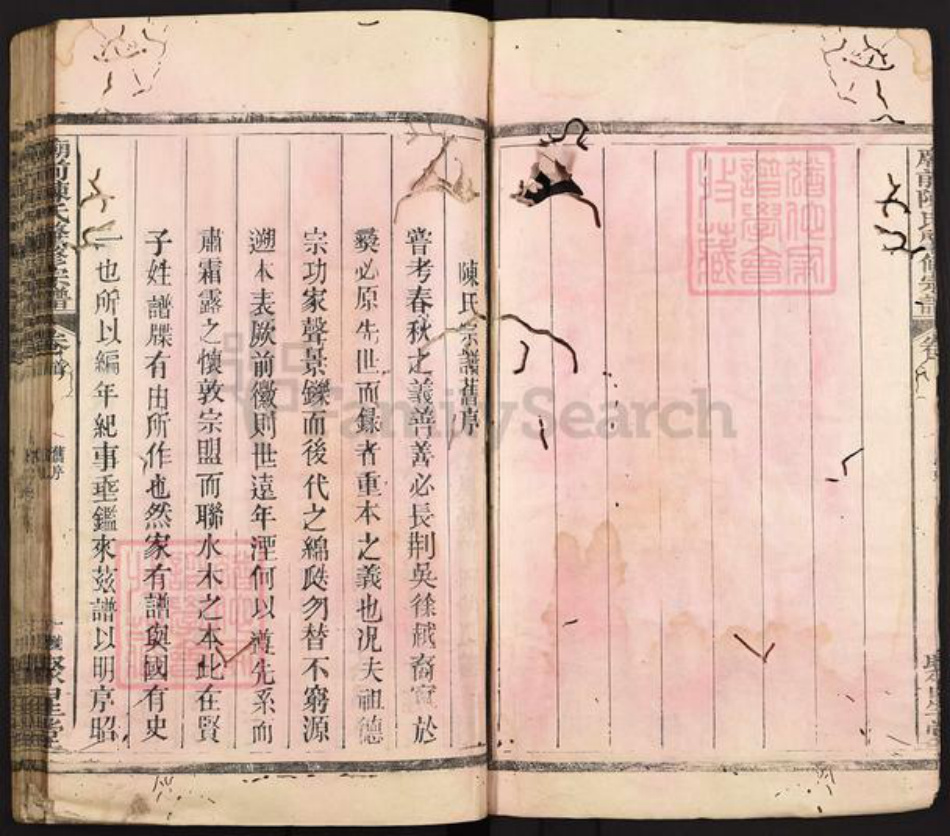 廟前陳氏
修宗譜
陳氏宗譜舊序
嘗考春秋之義善善必長荆吳徐越裔賓於
爰必原先世而録者重本之義也况夫祖德
宗功家聲景鑠而後代之綿瓞勿替不窮源
遡本表厥前徽則世遠年湮何以遵先系而
肅霜露之懷敦宗盟而聯水木之本此在賢
子姓譜牒有由所作也然家有譜與國有史
一也所以編年紀事垂鑑來玆譜以明序昭
舊序
FamilySearch